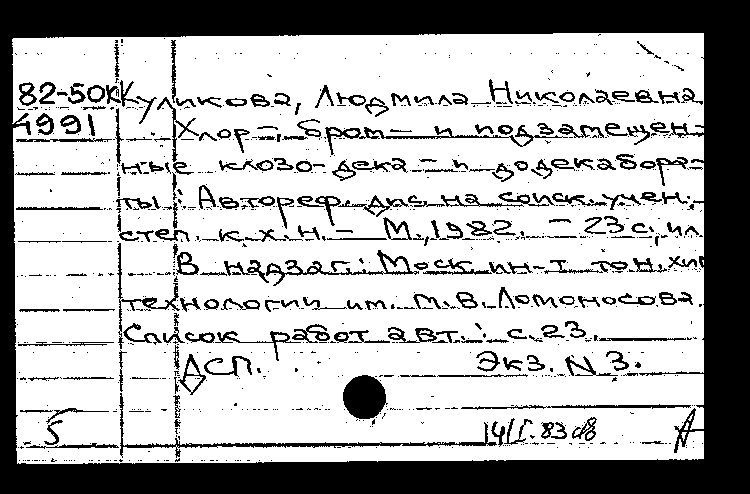 82-50КК Куликова, Людмила Николаевна
4991 Хлор-, бром- и иодзамещен-
ные клозо-дека- и додекабора-
ты : Автореф. дис. на соиск. учен.
степ. к.х.н. - М., 1982. - 23 с., ил
В надзаг.: Моск. ин-т тон. хим
технологии им. М.В. Ломоносова.
Список работ авт.: с. 23.
ДСП. Экз. N 3.
5 14/I.83 А